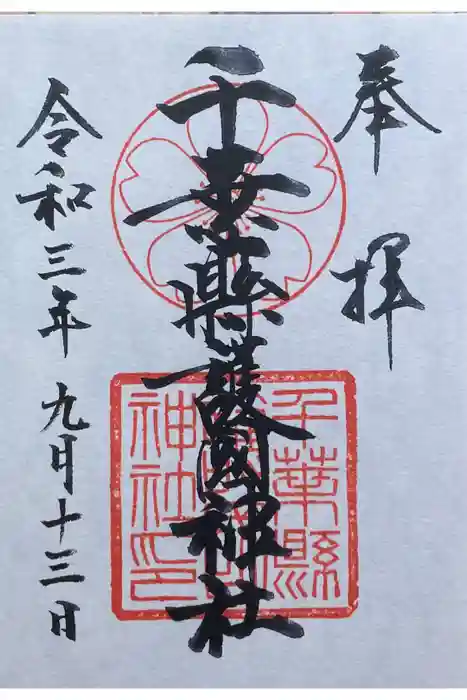 奉拝
千葉縣護國神社
令和三年九月十三日
千葉縣
護國
神社印